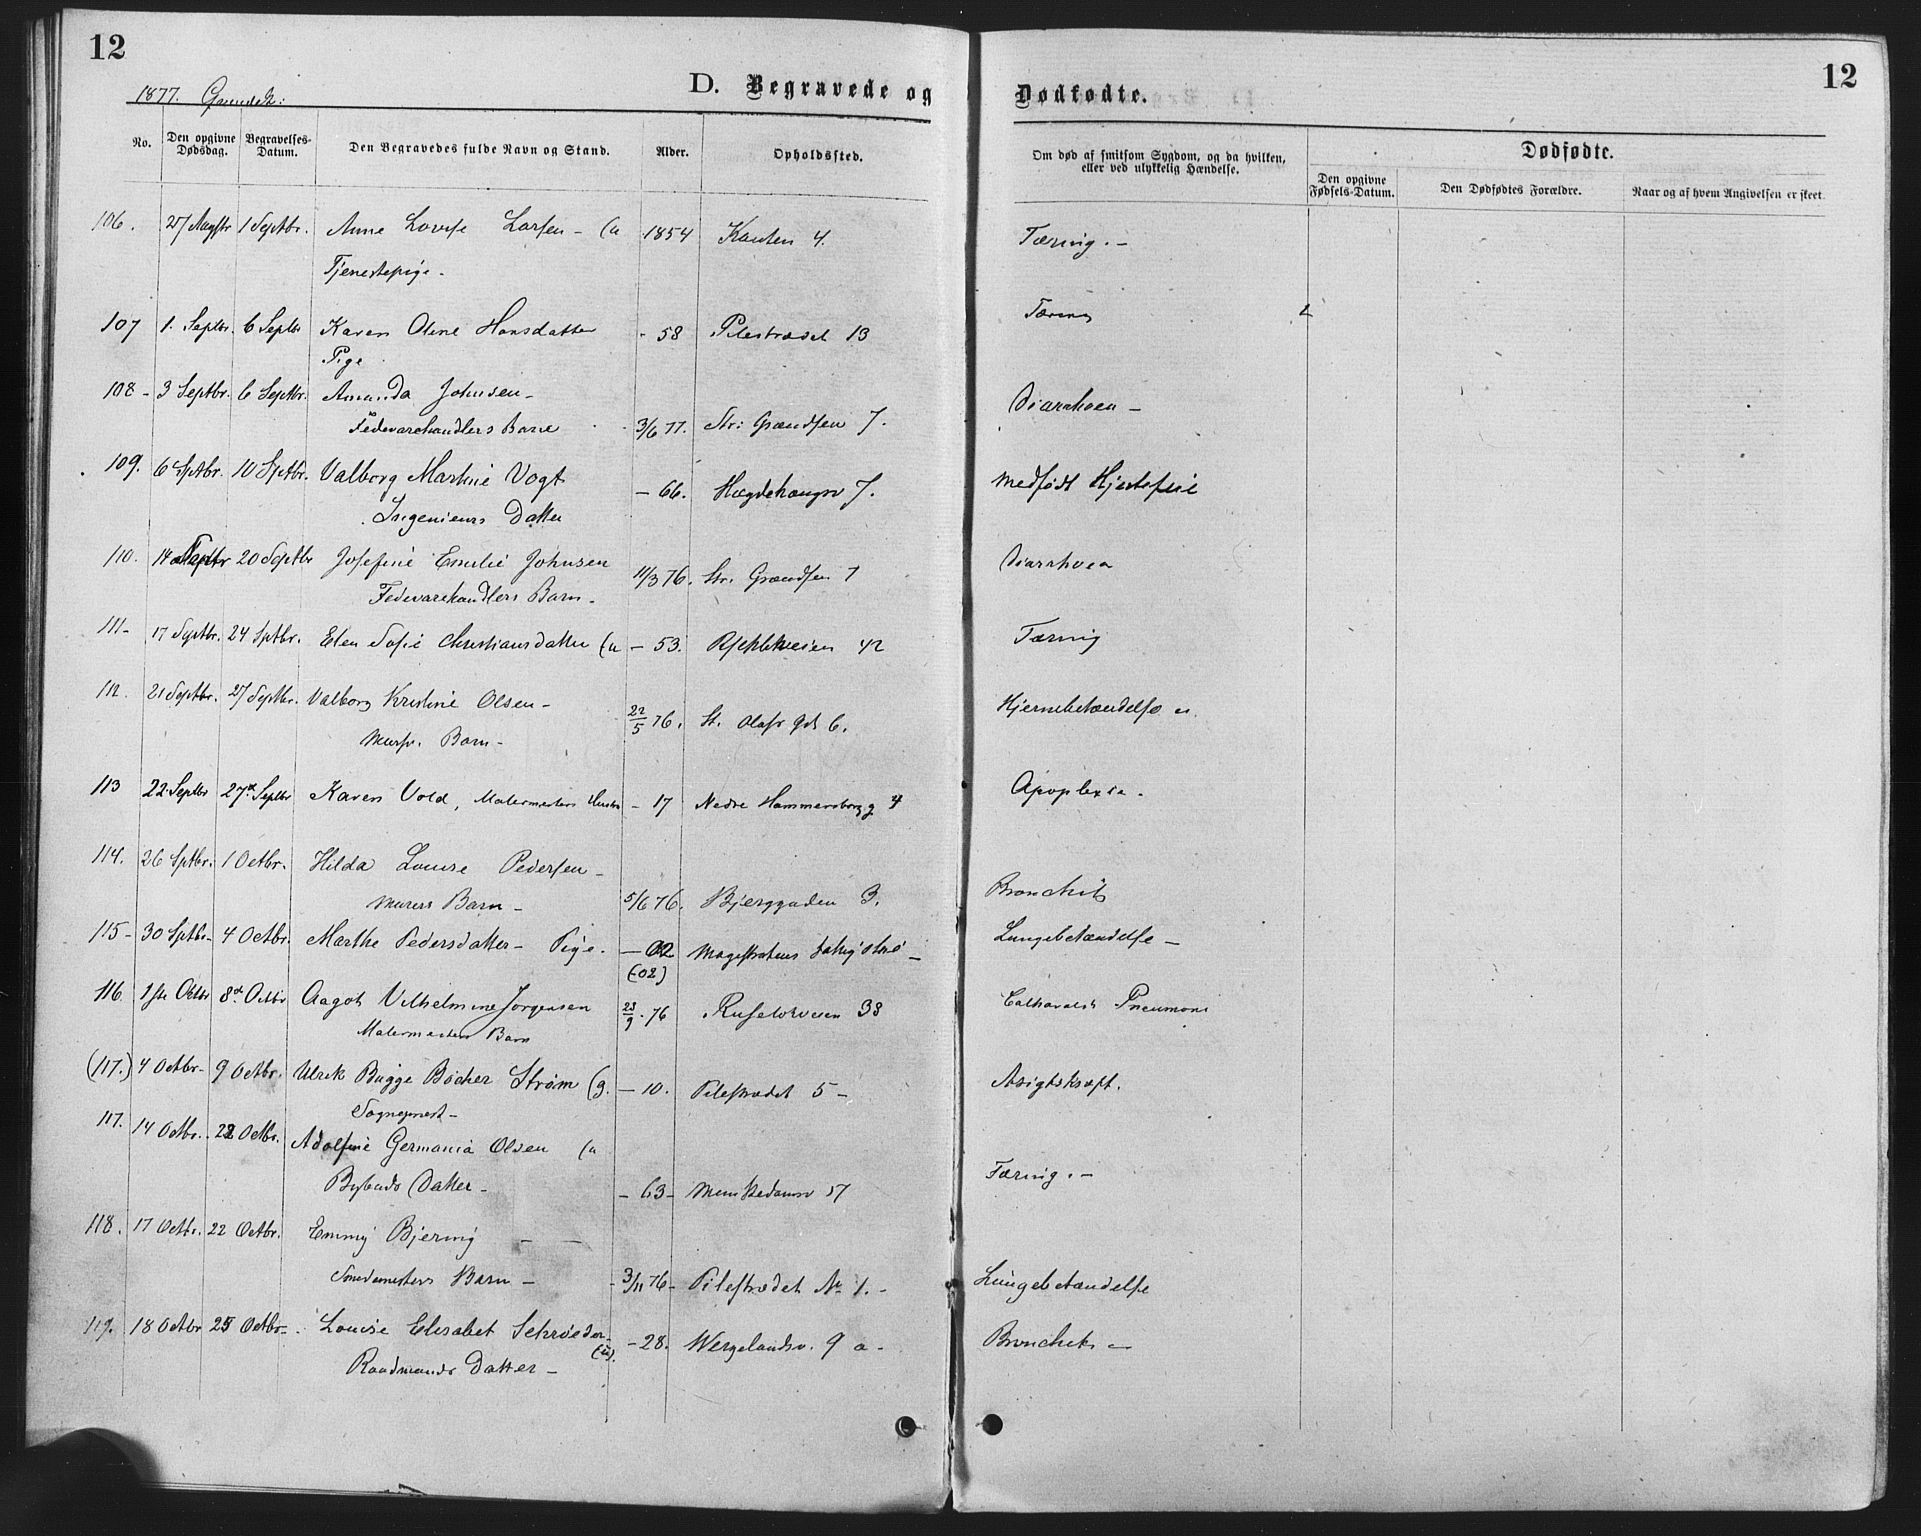 12
1877.
D. Begravede og Dødfødte.
12
No. Den opgivne Dødsdag. Begravelses-Datum. Den Begravedes fulde Navn og Stand. Alder. Opholdssted. Om død af smitsom Sygdom, og da hvilken, eller ved ulykkelig Hændelse. Dødfødte.
Den opgivne Fødsels-Datum. Den Dødfødtes Forældre. Naar og af hvem Angivelsen er skeet.
106. 27 Augstr 1 Septbr. Anne Lovise Larsen - (u 1854 Kanten 4. Tæring. -
Tjenestepige -
107 1. Septbr. 6 Septbr Karen Oline Hansdatter - 58 Pilestrædet 13 Tæring
Pige
108 - 3 Septbr. 6 Septbr. Amanda Johnsen - Diarrhoea -
Fedevarehandlers Barn 3/6 77. Str: Grændsen 7.
109. 6 Septbr. 10 Septbr. Valborg Martine Vogt - 66. Hægdehaugsv 7. Medfødt Hjertefeil
Ingenieurs Datter
110. 14 Septbr 20 Septbr Josefine Emilie Johnsen 11/3 76. Str. Grændsen 7 Diarrhoea
Fedevarehandlers Barn -
111 - 17 Septbr. 24 Septbr. Elen Sofie Christiansdatter (u - 53. 42 Tæring
112. 21 Septbr. 27 Septbr. Valborg Kristine Olsen - Hjernebetændelse
Mursv. Barn - 22/5 76. St. Olafs gd 6.
113 22 Septbr 27de Septbr Karen Vold, Malermesters Hustru - 17 Nedre Hammersborg g 4 Apoplexia -
114. 26 Sptbr. 1 Octbr. Hilda Louise Pedersen -
Murers Barn - 5/6 76. Bjerggaden 3. Bronchit
115 - 30 Sptbr - 4 Octbr. Marthe Pedersdatter - Pige. - 02 Magistratens - Lungebetændelse -
(-02)
116. 1ste Octbr 8de Octbr Aagot Vilhelmine Jørgensen 23/9 - 76 Ruseløkveien 38 Catharalsk Pneumoni
Malermesters Barn
(117.) 4 Octbr - 9 Octbr. Ulrik Bugge Bøcher Strøm (g. - 10. Pilestrædet 5 - Asigtskræft.
Sogneprest -
117. 14 Octbr. 22 Octbr. Adolfine Germania Olsen (u
Bybuds Datter - - 63 - Munkedamsv 57 Tæring. -
118. 17 Octbr. 22 Octbr. Emmy Bjering - -
Smedemesters Barn - - 3/11 76 - Pilestrædet No 1. - Lungebetændelse
119. 18 Octbr 25 Octbr - Louise Elisabet Schrøder - (u). - 28. Wergelandsv. 9 a - Bronchit -
Raadmands Datter -